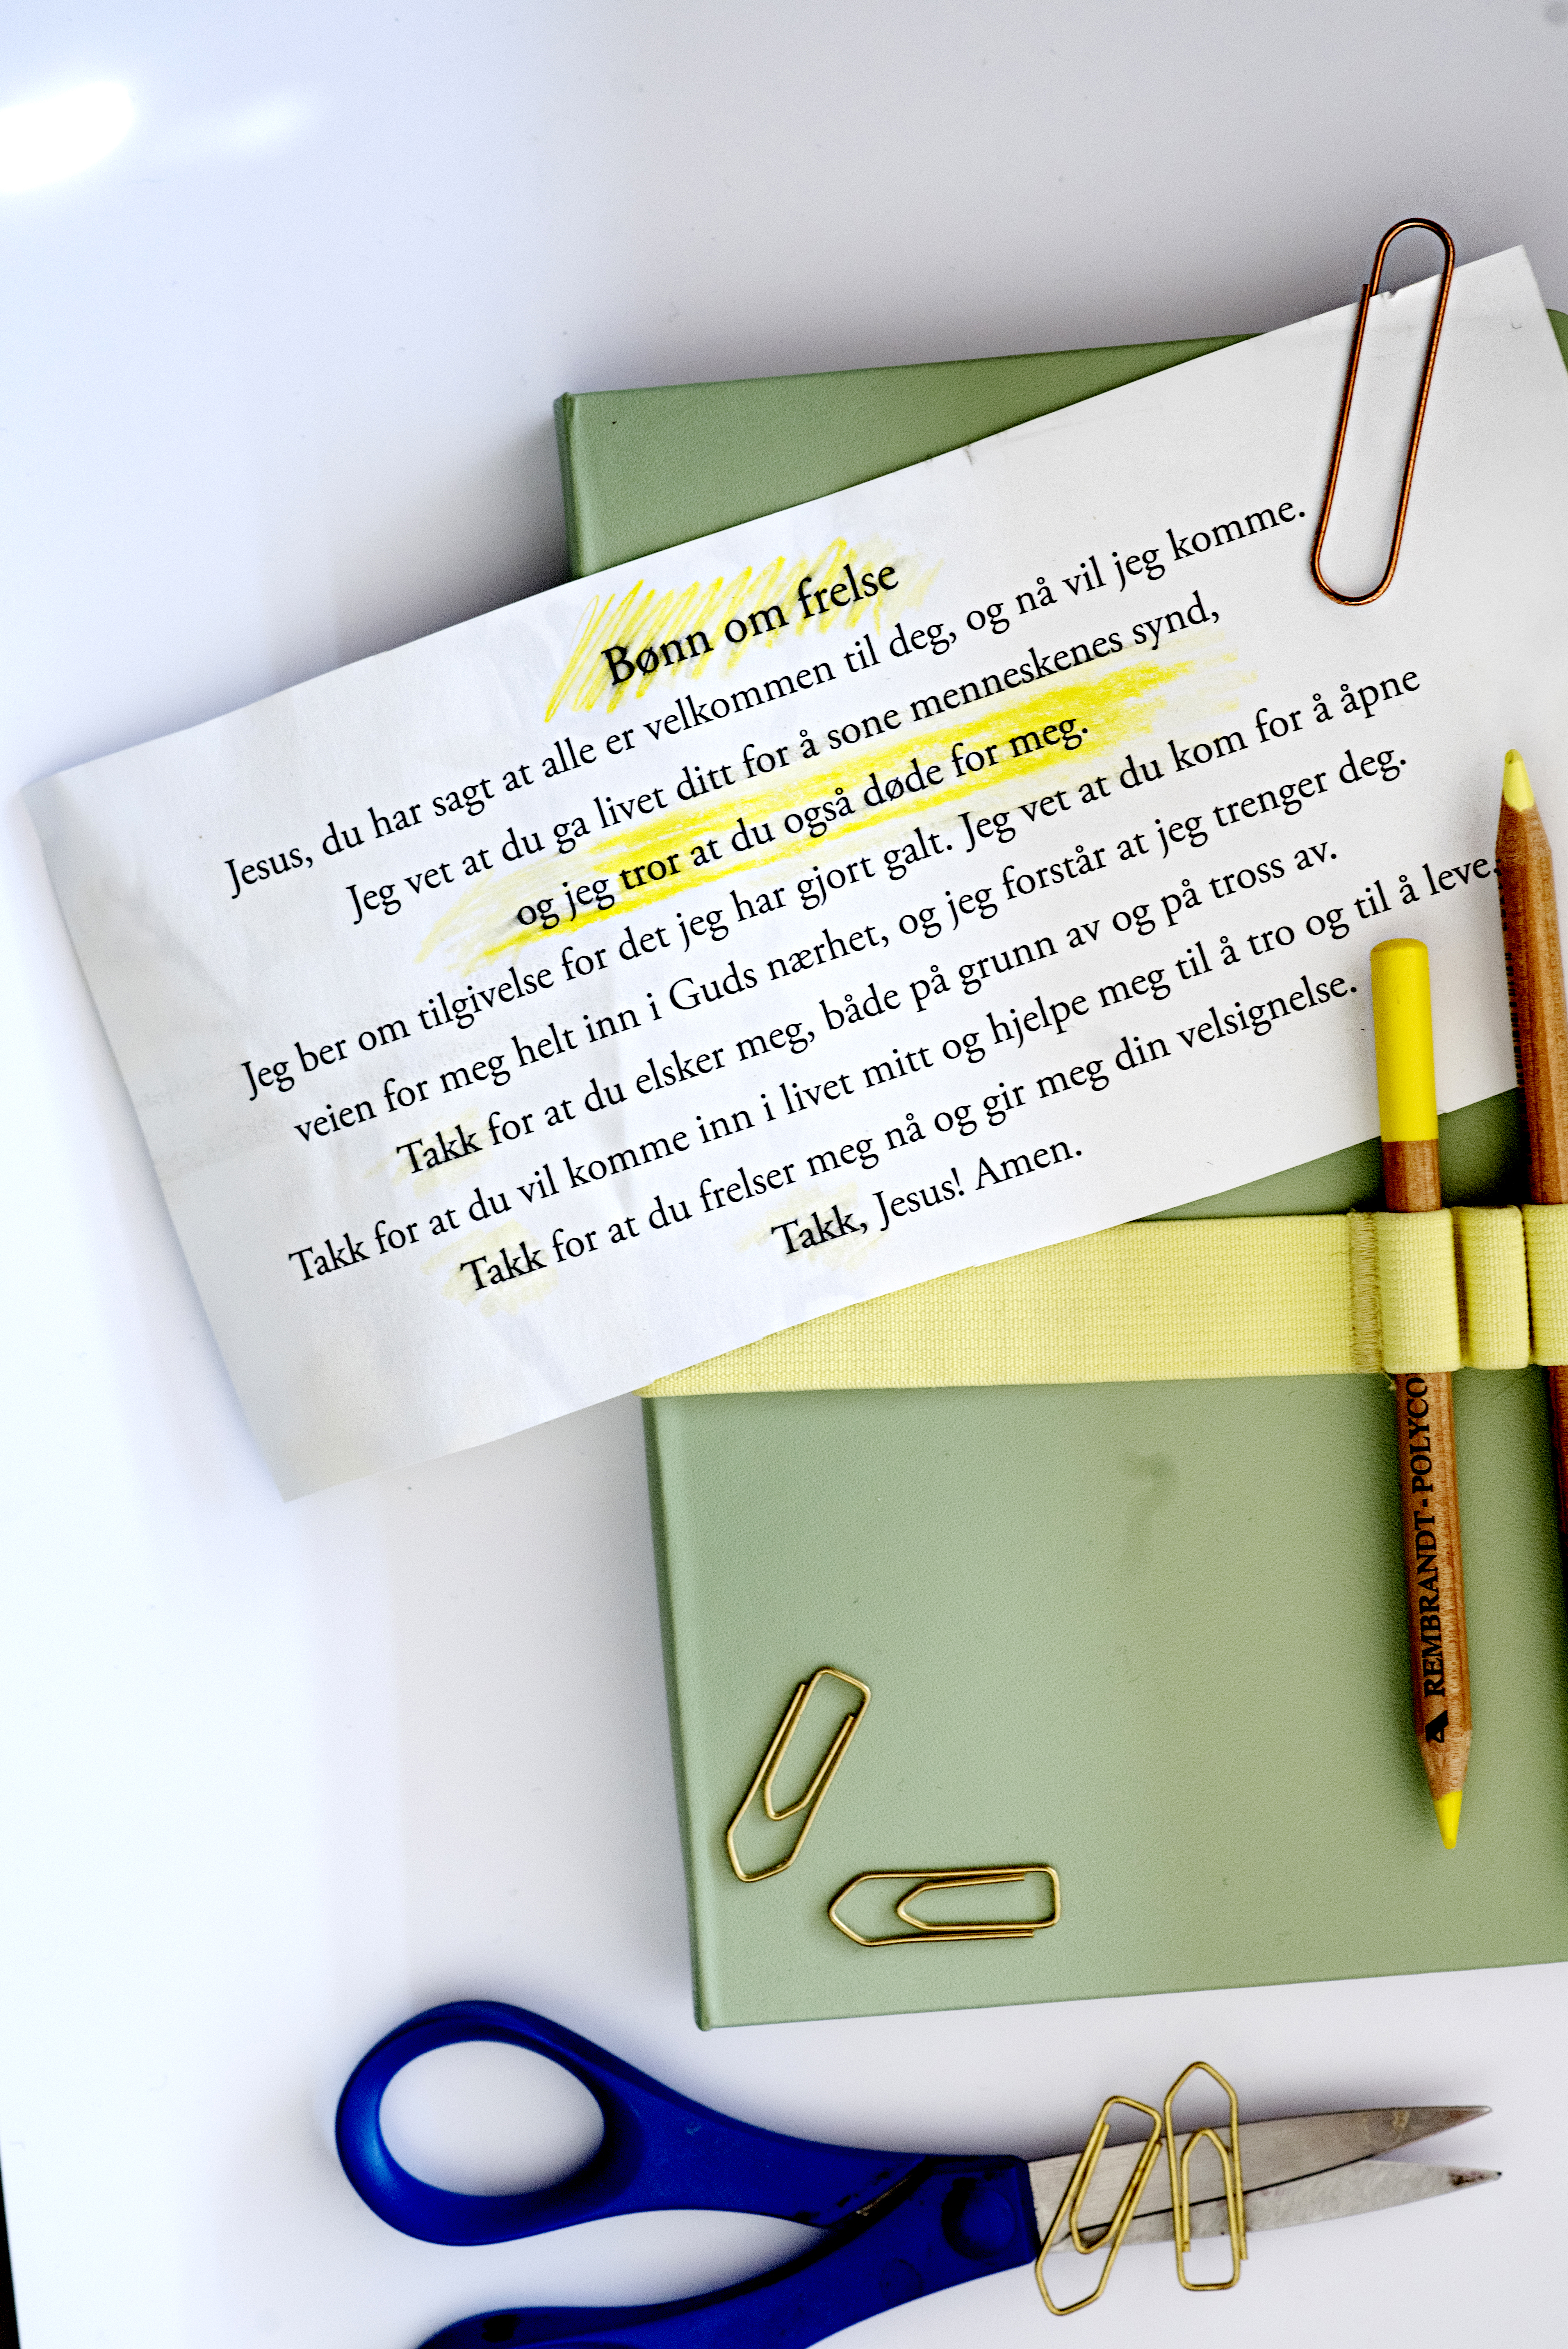 Bønn om frelse
Jesus, du har sagt at alle er velkommen til deg, og nå vil jeg komme.
Jeg vet at du ga livet ditt for å sone menneskenes synd,
og jeg tror at du også døde for meg.
Jeg ber om tilgivelse for det jeg har gjort galt. Jeg vet at du kom for å åpne
veien for meg helt inn i Guds nærhet, og jeg forstår at jeg trenger deg.
Takk for at du elsker meg, både på grunn av og på tross av.
Takk for at du vil komme inn i livet mitt og hjelpe meg til å tro og til å leve.
Takk for at du frelser meg nå og gir meg din velsignelse.
Takk, Jesus! Amen.
REMBRANDT-POLYCO